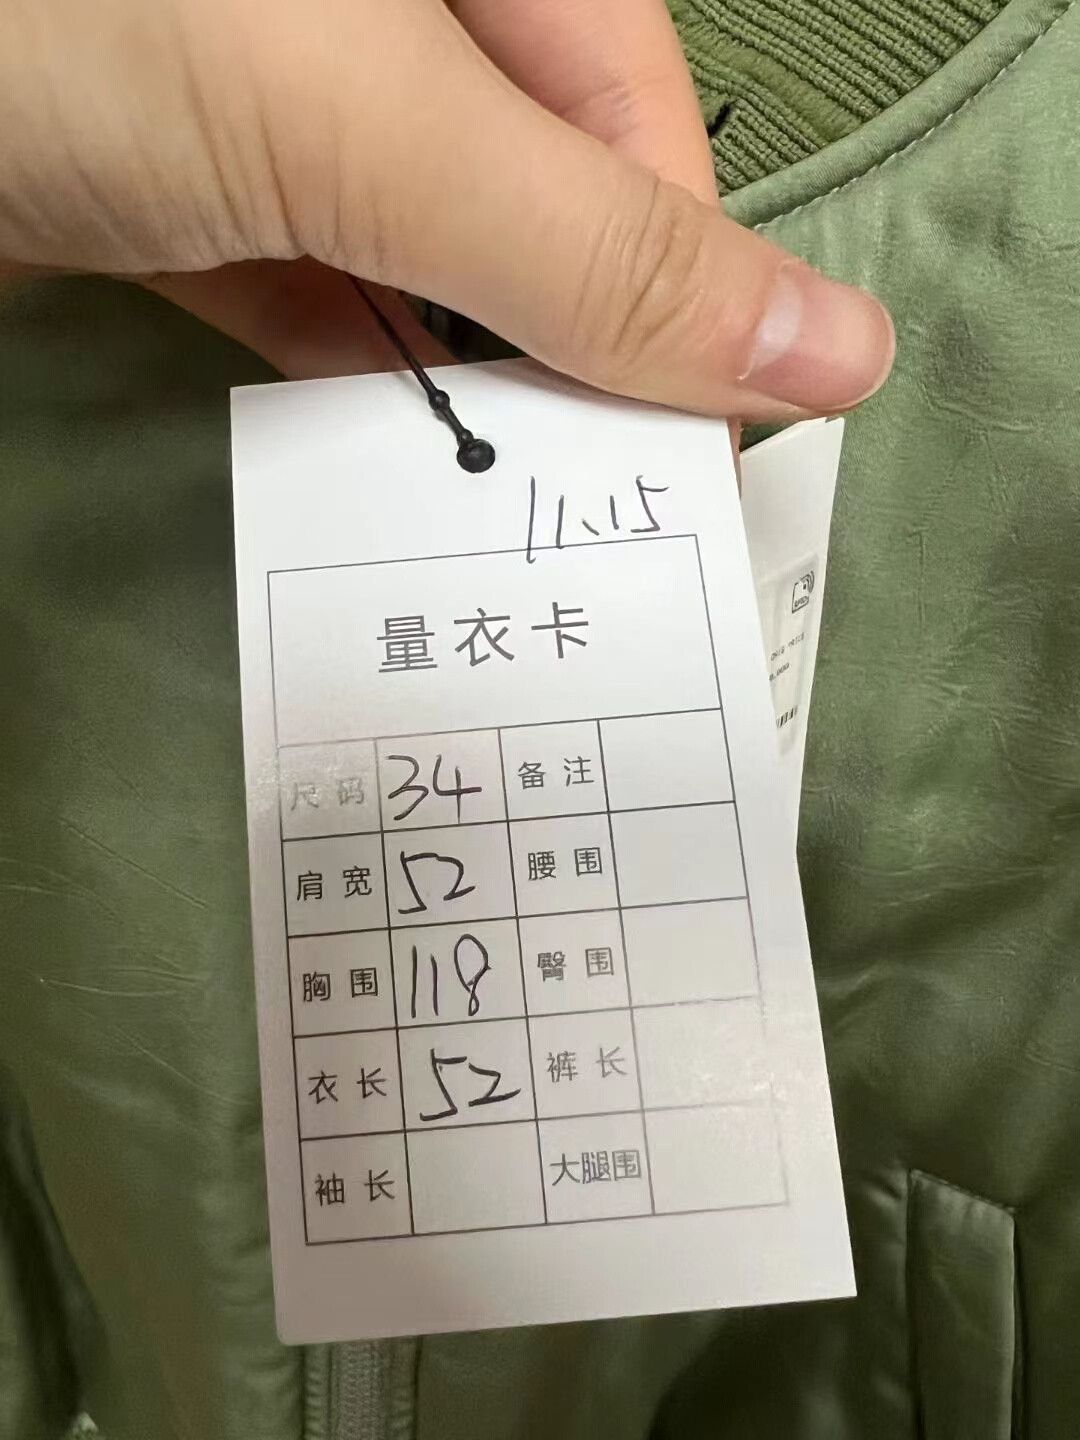 11.15
量衣卡
尺码 34 备注
肩宽 52 腰围
胸围 118 臀围
衣长 52 裤长
袖长 大腿围